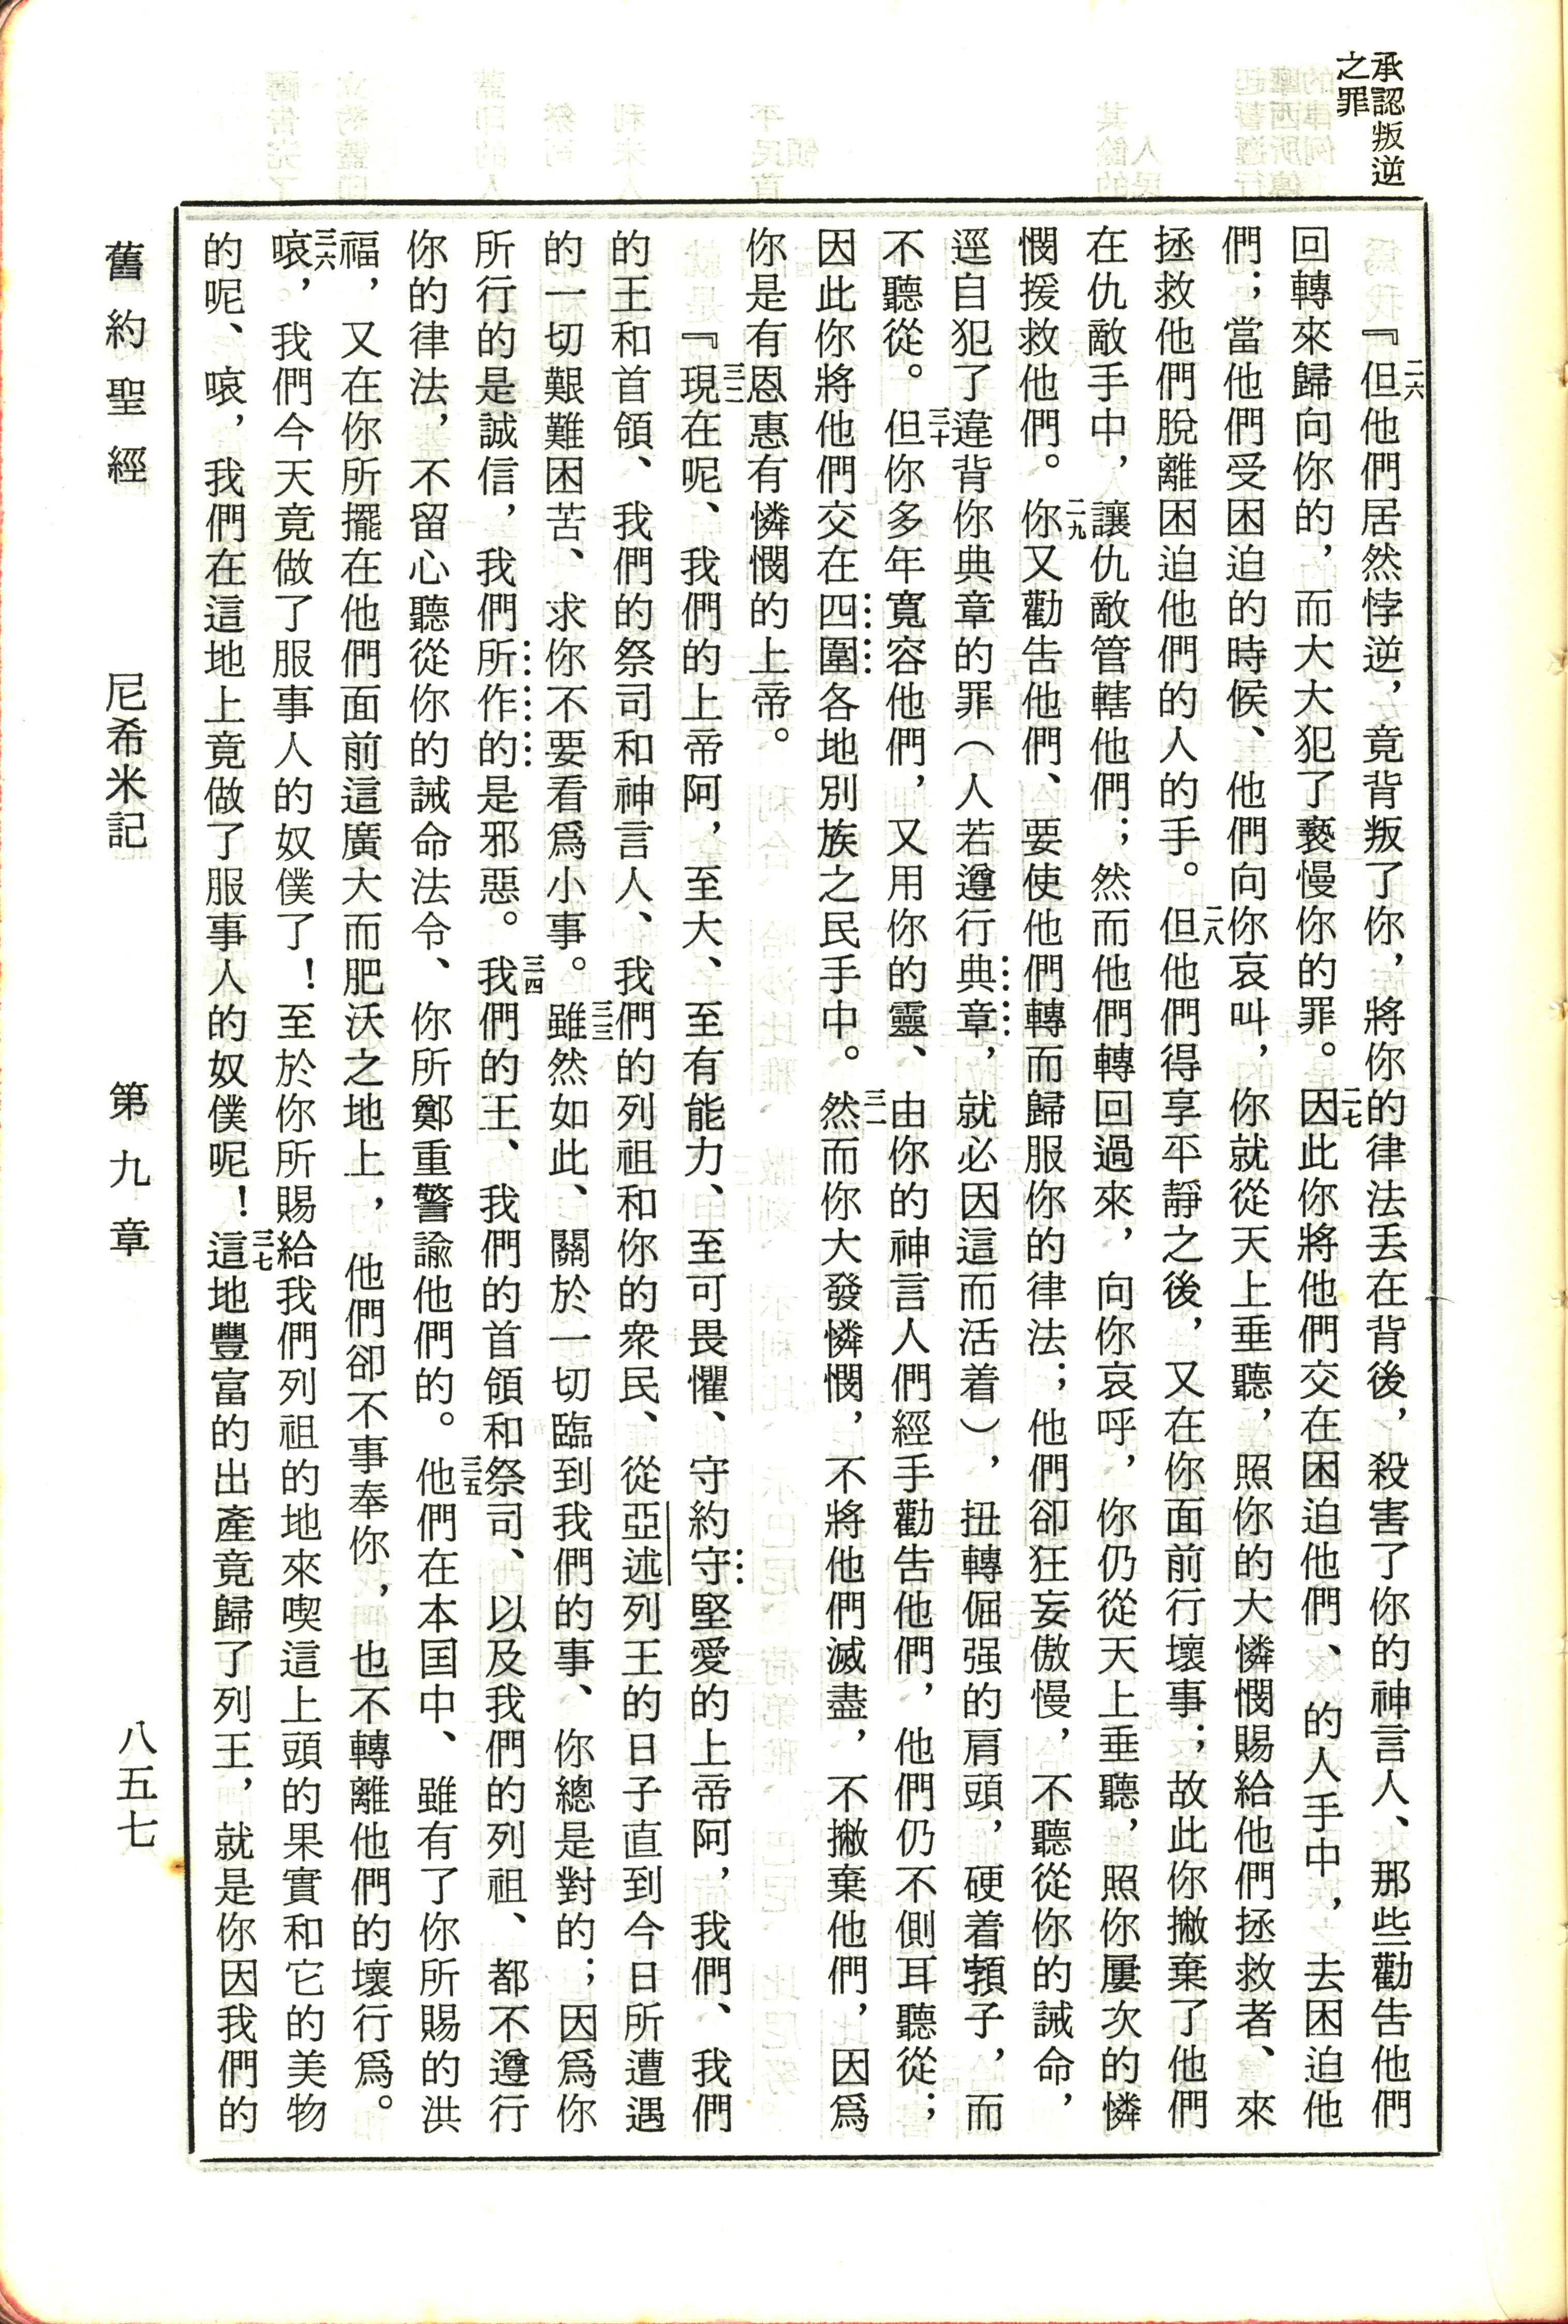 承認叛逆
之罪
『二六但他們居然悖逆，竟背叛了你，將你的律法丟在背後，殺害了你的神言人、那些勸告他們
回轉來歸向你的，而大大犯了褻慢你的罪。二七因此你將他們交在困迫他們、的人手中，去困迫他
們；當他們受困迫的時候、他們向你哀叫，你就從天上垂聽，照你的大憐憫賜給他們拯救者、來
拯救他們脫離困迫他們的人的手。二八但他們得享平靜之後，又在你面前行壞事；故此你撇棄了他們
在仇敵手中，讓仇敵管轄他們；然而他們轉回過來，向你哀呼，你仍從天上垂聽，照你屢次的憐
憫援救他們。二九你又勸告他們、要使他們轉而歸服你的律法；他們卻狂妄傲慢，不聽從你的誡命，
逕自犯了違背你典章的罪（人若遵行典章，就必因這而活着），扭轉倔强的肩頭，硬着顇子，而
不聽從。三十但你多年寬容他們，又用你的靈、由你的神言人們經手勸告他們，他們仍不側耳聽從；
因此你將他們交在四圍各地別族之民手中。三一然而你大發憐憫，不將他們滅盡，不撇棄他們，因爲
你是有恩惠有憐憫的上帝。
『三二現在呢、我們的上帝阿，至大、至有能力、至可畏懼、守約守堅愛的上帝阿，我們、我們
的王和首領、我們的祭司和神言人、我們的列祖和你的衆民、從亞述列王的日子直到今日所遭遇
的一切艱難困苦、求你不要看爲小事。三三雖然如此、關於一切臨到我們的事、你總是對的；因爲你
所行的是誠信，我們所作的是邪惡。三四我們的王、我們的首領和祭司、以及我們的列祖、都不遵行
你的律法，不留心聽從你的誡命法令、你所鄭重警諭他們的。三五他們在本国中、雖有了你所賜的洪
福，又在你所擺在他們面前這廣大而肥沃之地上，他們卻不事奉你，也不轉離他們的壞行爲。
三六唉，我們今天竟做了服事人的奴僕了！至於你所賜給我們列祖的地來喫這上頭的果實和它的美物
的呢、唉，我們在這地上竟做了服事人的奴僕呢！三七這地豐富的出產竟歸了列王，就是你因我們的
舊約聖經　尼希米記　第九章　八五七